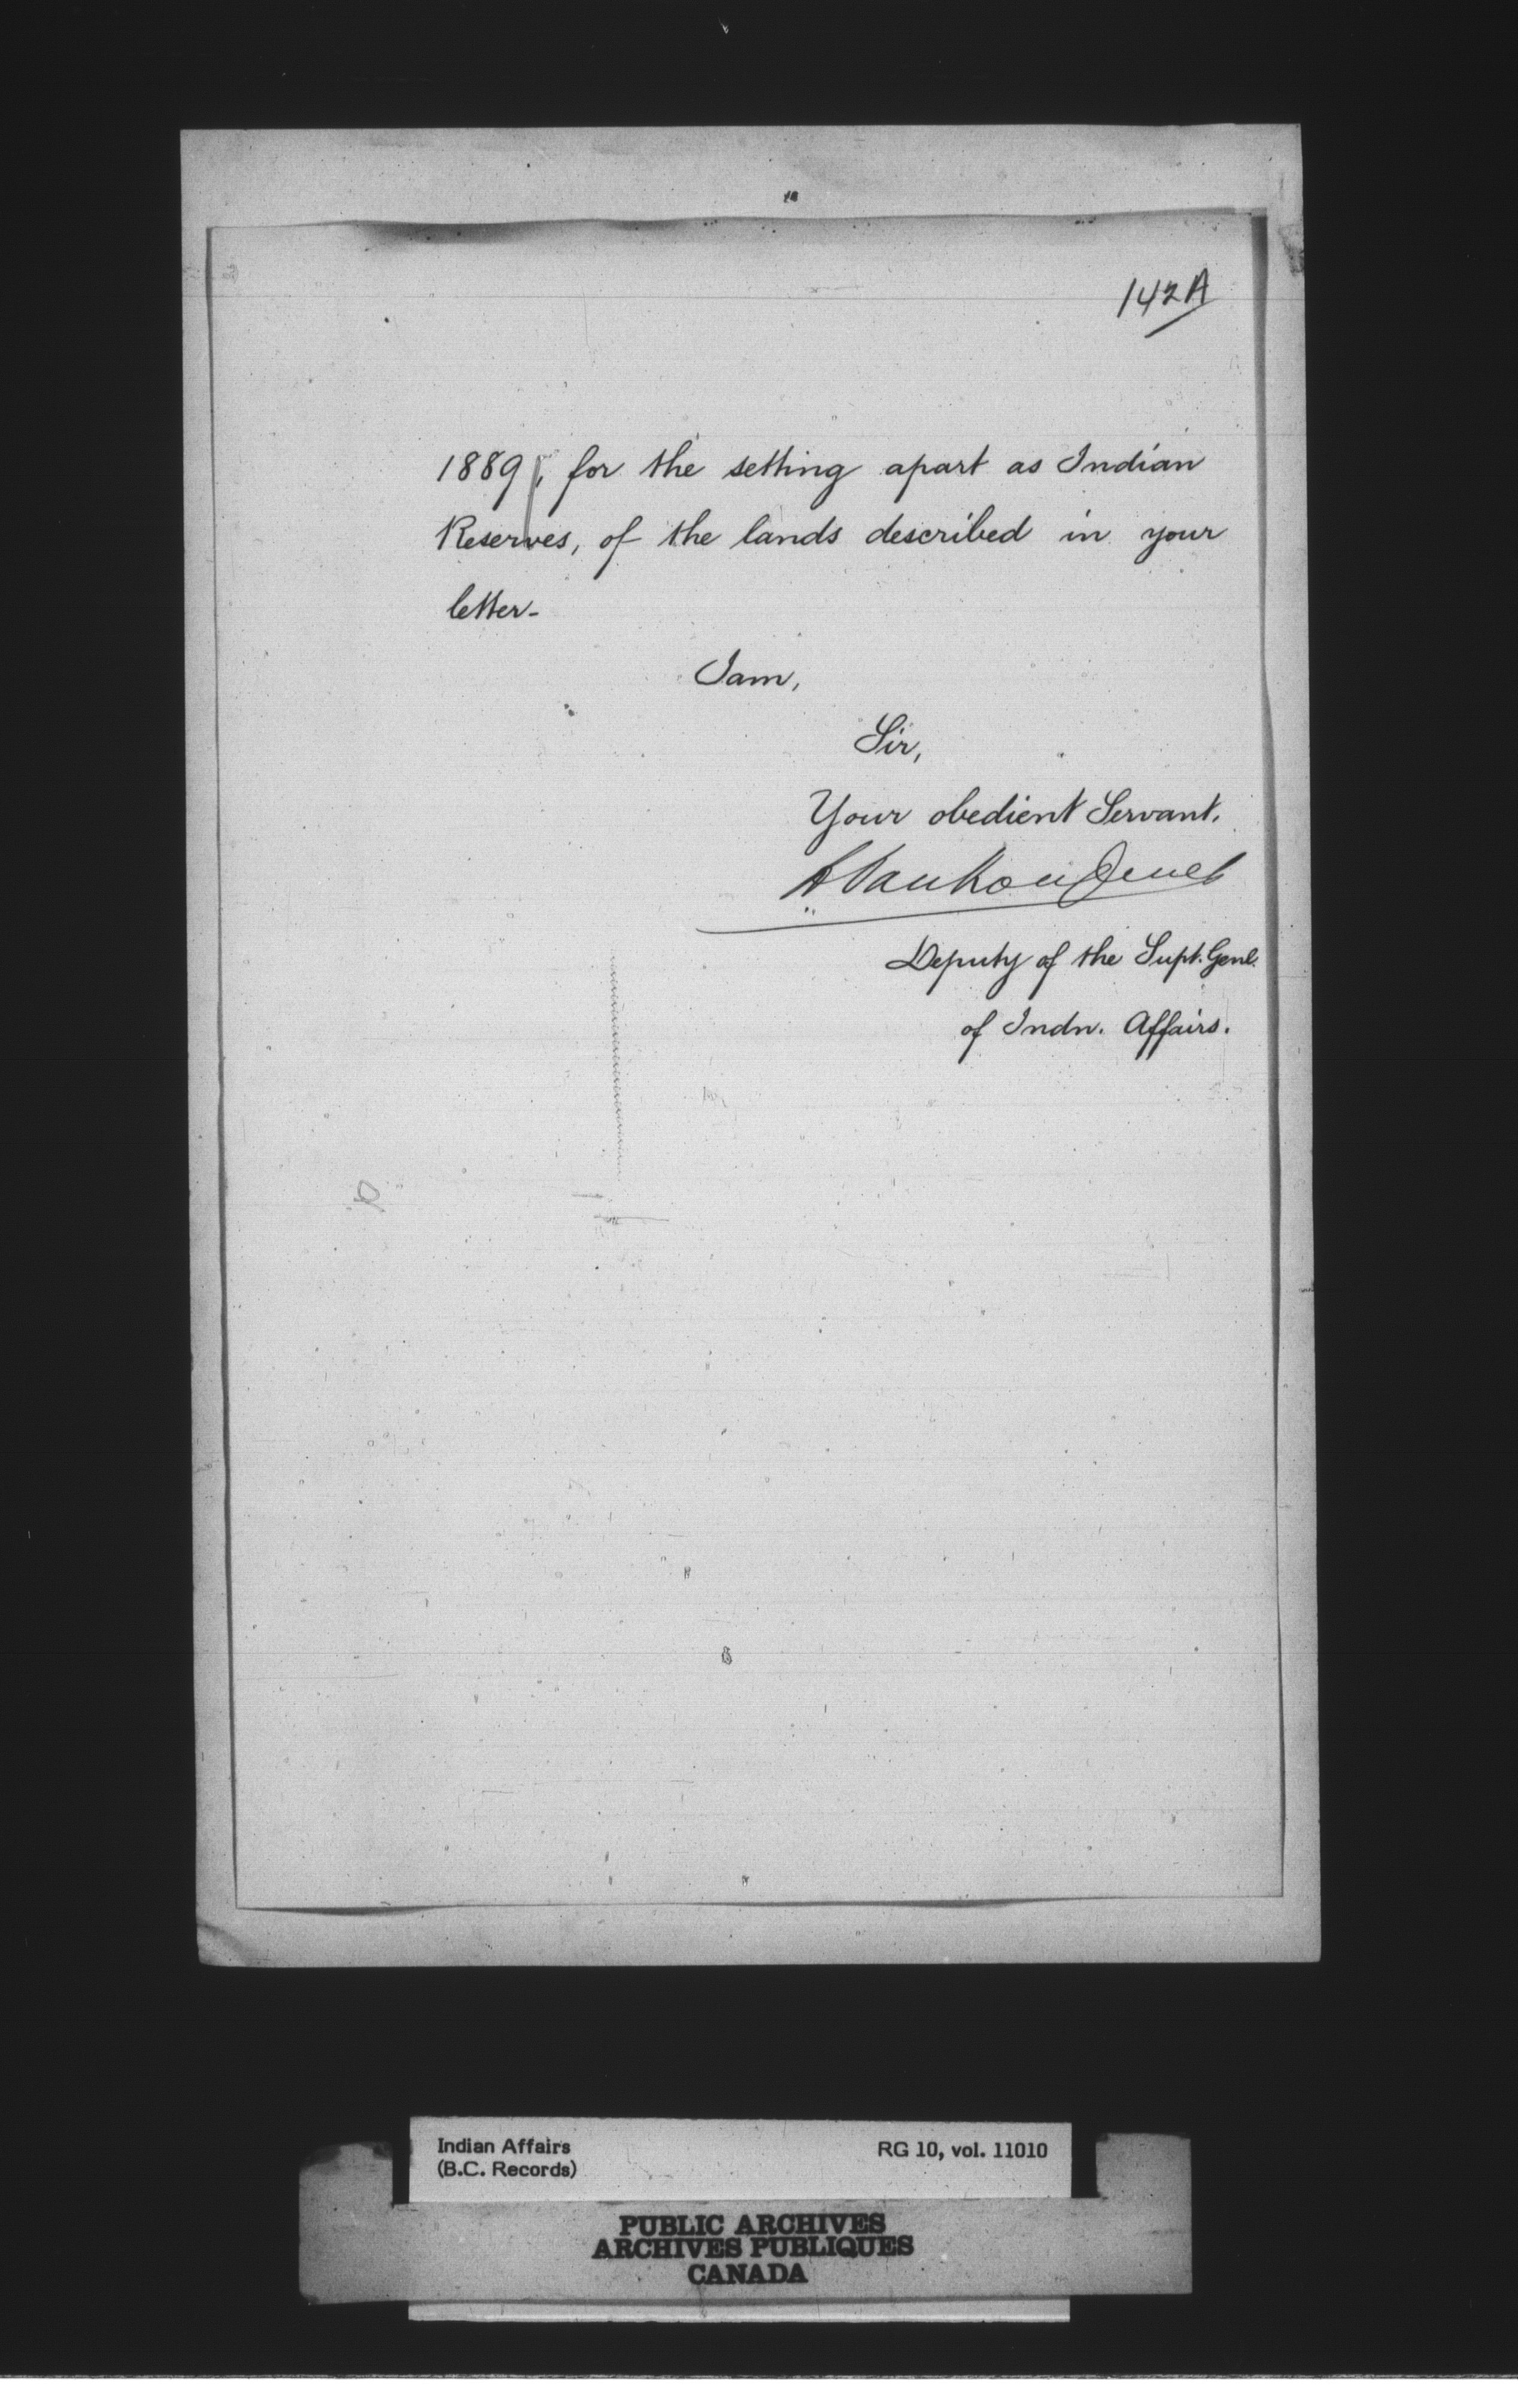 142A
1889, for the setting apart as Indian
Reserves, of the lands described in your
letter-
I am,
Sir,
Your obedient Servant.
L Vankoughnet
Deputy of the Supt. Genl.
of Indn. Affairs.
Indian Affairs
(B.C. Records)
RG 10, vol. 11010
PUBLIC ARCHIVES
ARCHIVES PUBLIQUES
CANADA